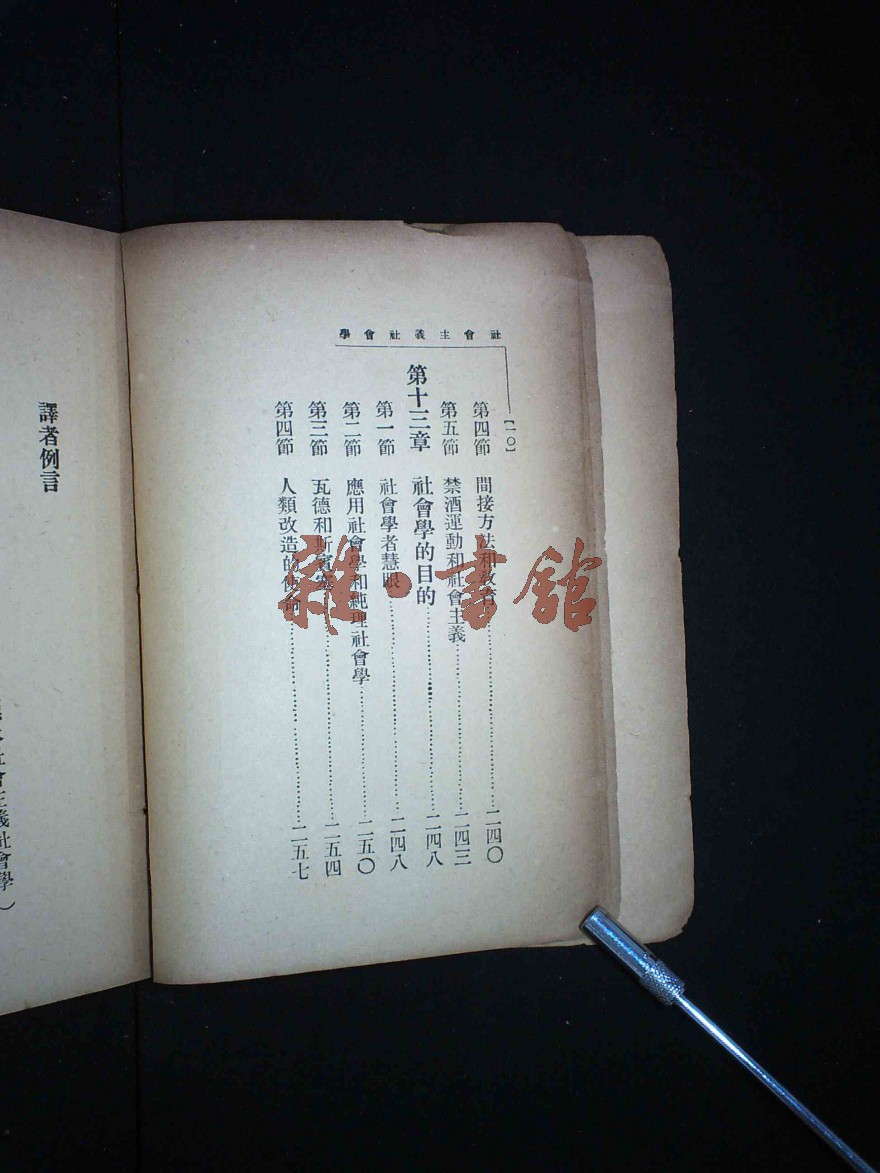 社會主義社會學
【一〇】
第四節 間接方法和教育……二四〇
第五節 禁酒運動和社會主義……二四三
第十三章 社會學的目的……二四八
第一節 社會學者慧眼……二四八
第二節 應用社會學和純理社會學……二五〇
第三節 瓦德和斯賓塞……二五四
第四節 人類改造的使命……二五七
譯者例言
社會主義社會學）
雜·書館